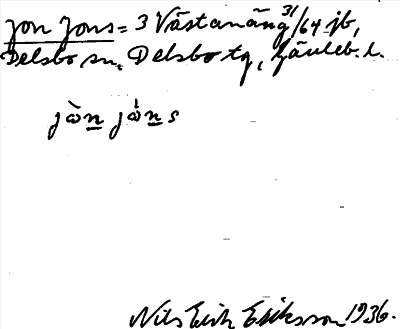 Jon Jons = 3 Västanäng 31/64 jb,
Delsbo sn. Delsbo tg, Gävleb. l.
jòn jòns
Nils Erik Eriksson 1936.